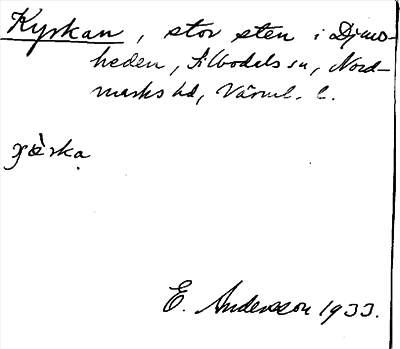 Kyrkan, stor sten i Djuvs-
heden, Silbodals sn, Nord-
marks hd, Värml. l.
x̀ærka
E. Andersson 1933.